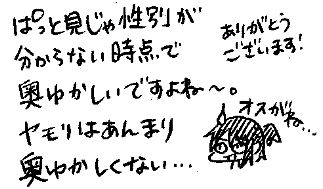 ぱっと見じゃ性別が
分からない時点で
奥ゆかしいですよね〜。
ヤモリはあんまり
奥ゆかしくない…
ありがとう
ございます!
オスがね…